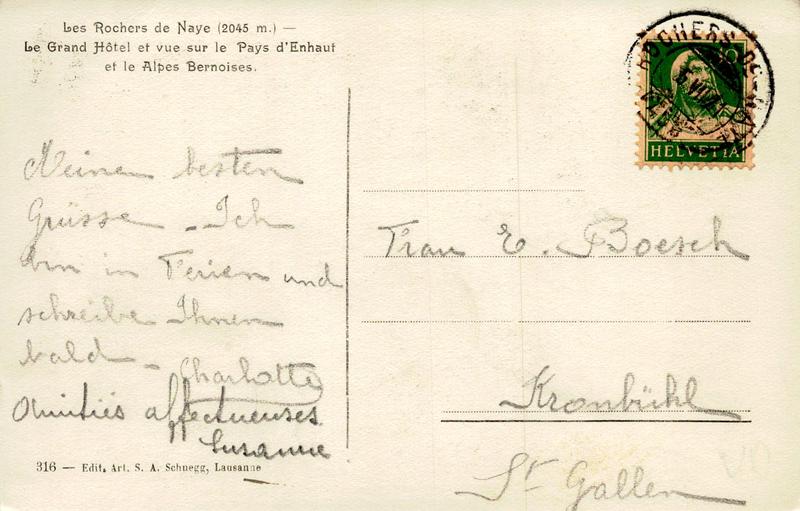 Les Rochers de Naye (2045 m.) —
Le Grand Hôtel et vue sur le Pays d'Enhaut
et le Alpes Bernoises.
ROCHERS DE NAYE
HELVETIA
Meinen besten
Grüsse - Ich
bin in Ferien und
schreibe Ihnen
bald - Charlotte
Amitiés affectueuses
Susanne
Frau E. Boesch
Kronbühl
St Gallen
316 — Edit. Art. S. A. Schnegg, Lausanne